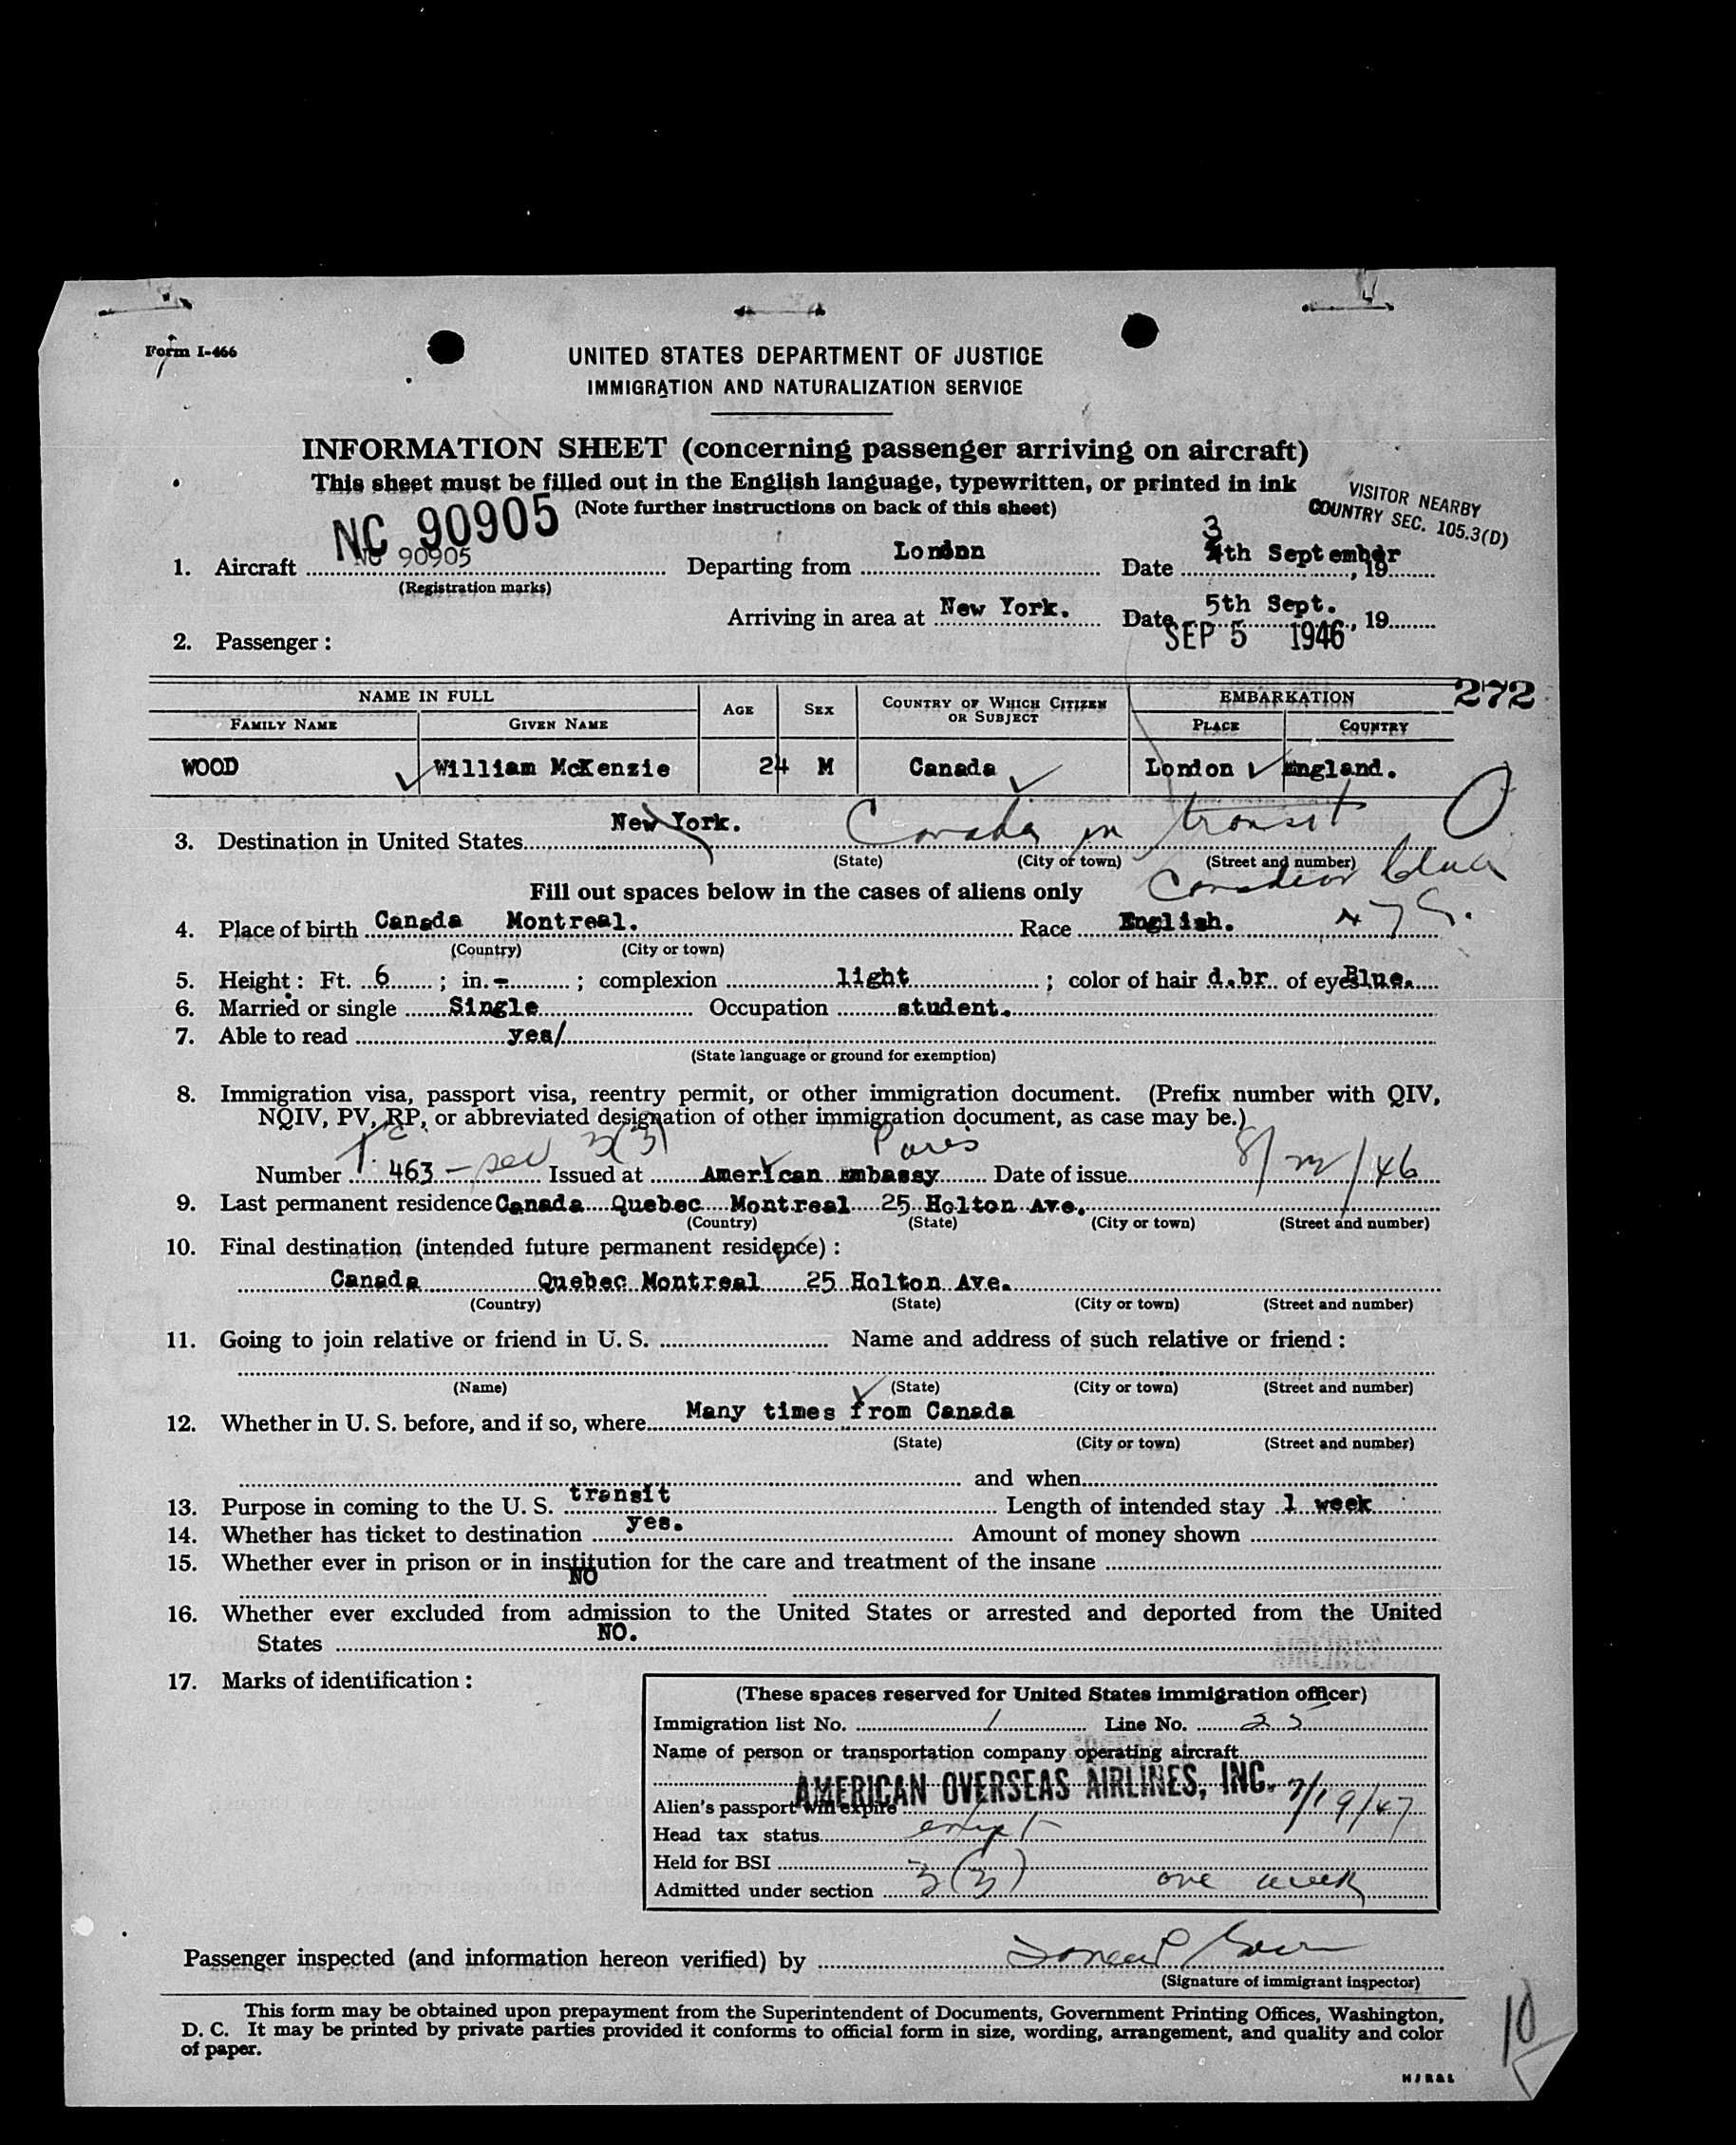 Form I-466
UNITED STATES DEPARTMENT OF JUSTICE
IMMIGRATION AND NATURALIZATION SERVICE
INFORMATION SHEET (concerning passenger arriving on aircraft)
This sheet must be filled out in the English language, typewritten, or printed in ink
(Note further instructions on back of this sheet)
VISITOR NEARBY
COUNTRY SEC. 105.3(D)
NC 90905
3
1. Aircraft NC 90905 Departing from London Date 4th September, 19
(Registration marks)
Arriving in area at New York. Date 5th Sept., 19
SEP 5 1946
2. Passenger:
272
NAME IN FULL AGE SEX COUNTRY OF WHICH CITIZEN OR SUBJECT EMBARKATION
FAMILY NAME GIVEN NAME PLACE COUNTRY
WOOD William McKenzie 24 M Canada London England.
3. Destination in United States New York. Canada in transit
(State) (City or town) (Street and number)
Fill out spaces below in the cases of aliens only Canadian
4. Place of birth Canada Montreal. Race English.
(Country) (City or town)
5. Height: Ft. 6; in. -; complexion light; color of hair d.br. of eyes Blue.
6. Married or single Single Occupation student.
7. Able to read yes/
(State language or ground for exemption)
8. Immigration visa, passport visa, reentry permit, or other immigration document. (Prefix number with QIV,
NQIV, PV, RP, or abbreviated designation of other immigration document, as case may be.)
Number 463 - sec 3(3) Issued at American Embassy Paris Date of issue 8/22/46
9. Last permanent residence Canada Quebec Montreal 25 Holton Ave.
(Country) (State) (City or town) (Street and number)
10. Final destination (intended future permanent residence):
Canada Quebec Montreal 25 Holton Ave.
(Country) (State) (City or town) (Street and number)
11. Going to join relative or friend in U. S. Name and address of such relative or friend:
(Name) (State) (City or town) (Street and number)
12. Whether in U. S. before, and if so, where Many times from Canada
(State) (City or town) (Street and number)
and when
13. Purpose in coming to the U. S. transit Length of intended stay 1 week
14. Whether has ticket to destination yes. Amount of money shown
15. Whether ever in prison or in institution for the care and treatment of the insane
NO
16. Whether ever excluded from admission to the United States or arrested and deported from the United
States NO.
17. Marks of identification:
(These spaces reserved for United States immigration officer)
Immigration list No. 1 Line No. 25
Name of person or transportation company operating aircraft
AMERICAN OVERSEAS AIRLINES, INC.
Alien's passport will expire 7/19/47
Head tax status
Held for BSI
Admitted under section 3(3) one week
Passenger inspected (and information hereon verified) by
(Signature of immigrant inspector)
This form may be obtained upon prepayment from the Superintendent of Documents, Government Printing Offices, Washington,
D. C. It may be printed by private parties provided it conforms to official form in size, wording, arrangement, and quality and color
of paper.
10